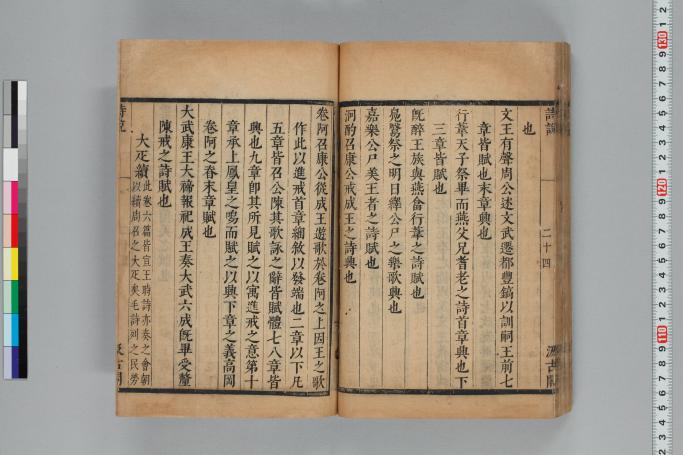 也
文王有聲周公述文武遷都豐鎬以訓嗣王前七
章皆賦也末章興也
行葦天子祭畢而燕父兄耆老之詩首章興也下
三章皆賦也
旣醉王族與燕畣行葦之詩賦也
鳧鷖祭之明日繹公尸之樂歌興也
嘉樂公尸美王者之詩賦也
泂酌召康公戒成王之詩興也
二十四
汲古閣
卷阿召康公從成王遊歌於卷阿之上因王之歌
作此以進戒首章總敘以發端也二章以下凡
五章皆召公陳其歌詠之辭皆賦體七八章皆
興也九章卽其所見賦之以寓進戒之意第十
章承上鳳皇之鳴而賦之以興下章之義高岡
卷阿之春末章賦也
大武康王大禘報祀成王奏大武六成旣畢受釐
陳戒之詩賦也
大疋續
此卷六篇皆宣王時詩亦奏之會朝
以續周召之大疋矣毛詩列之民勞
汲古閣
110
120
130